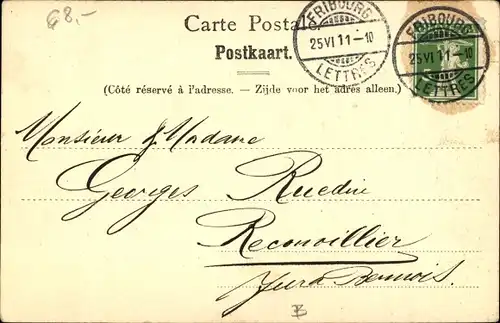 €8,-
Carte Postale.
Postkaart.
(Côté réservé à l'adresse. — Zijde voor het adres alleen.)
FRIBOURG
25 VI 11-10
LETTRES
FRIBOURG
25 VI 11-10
LETTRES
Monsieur & Madame
Georges Ruedin
Reconvillier
Jura Bernois.